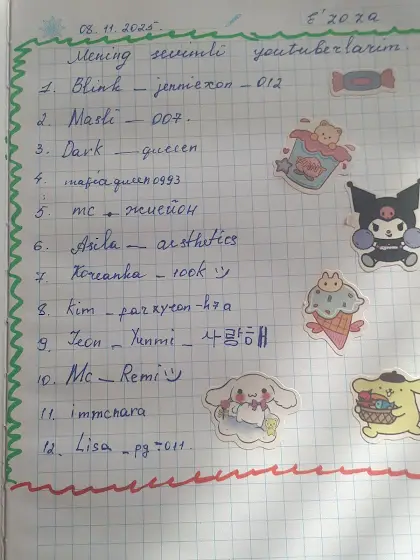 08.11.2025.
E'zoza
Mening sevimli youtuberlarim.
1. Blink – jenniexon – 012
2. Masli – 007.
3. Dark – queen
4. mafiaqueen0993
5. mc . жисйон
6. Asila – aesthetics
7. Koreanka – 100k
8. Kim – parxyeon-h7a
9. Jeon – Yunmi – 사랑해
10. Mc – Remi
11. immchara
12. Lisa – pg-011.